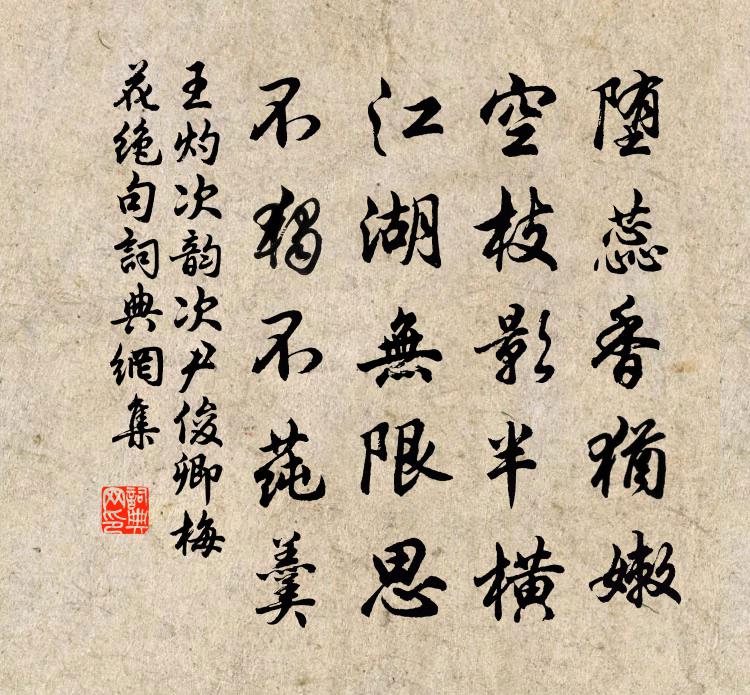 堕蕊香猶嫩
空枝影半橫
江湖無限思
不獨不蒓羹
王灼次韵次尹俊卿梅
花絶句詞典網集
詞典
网印